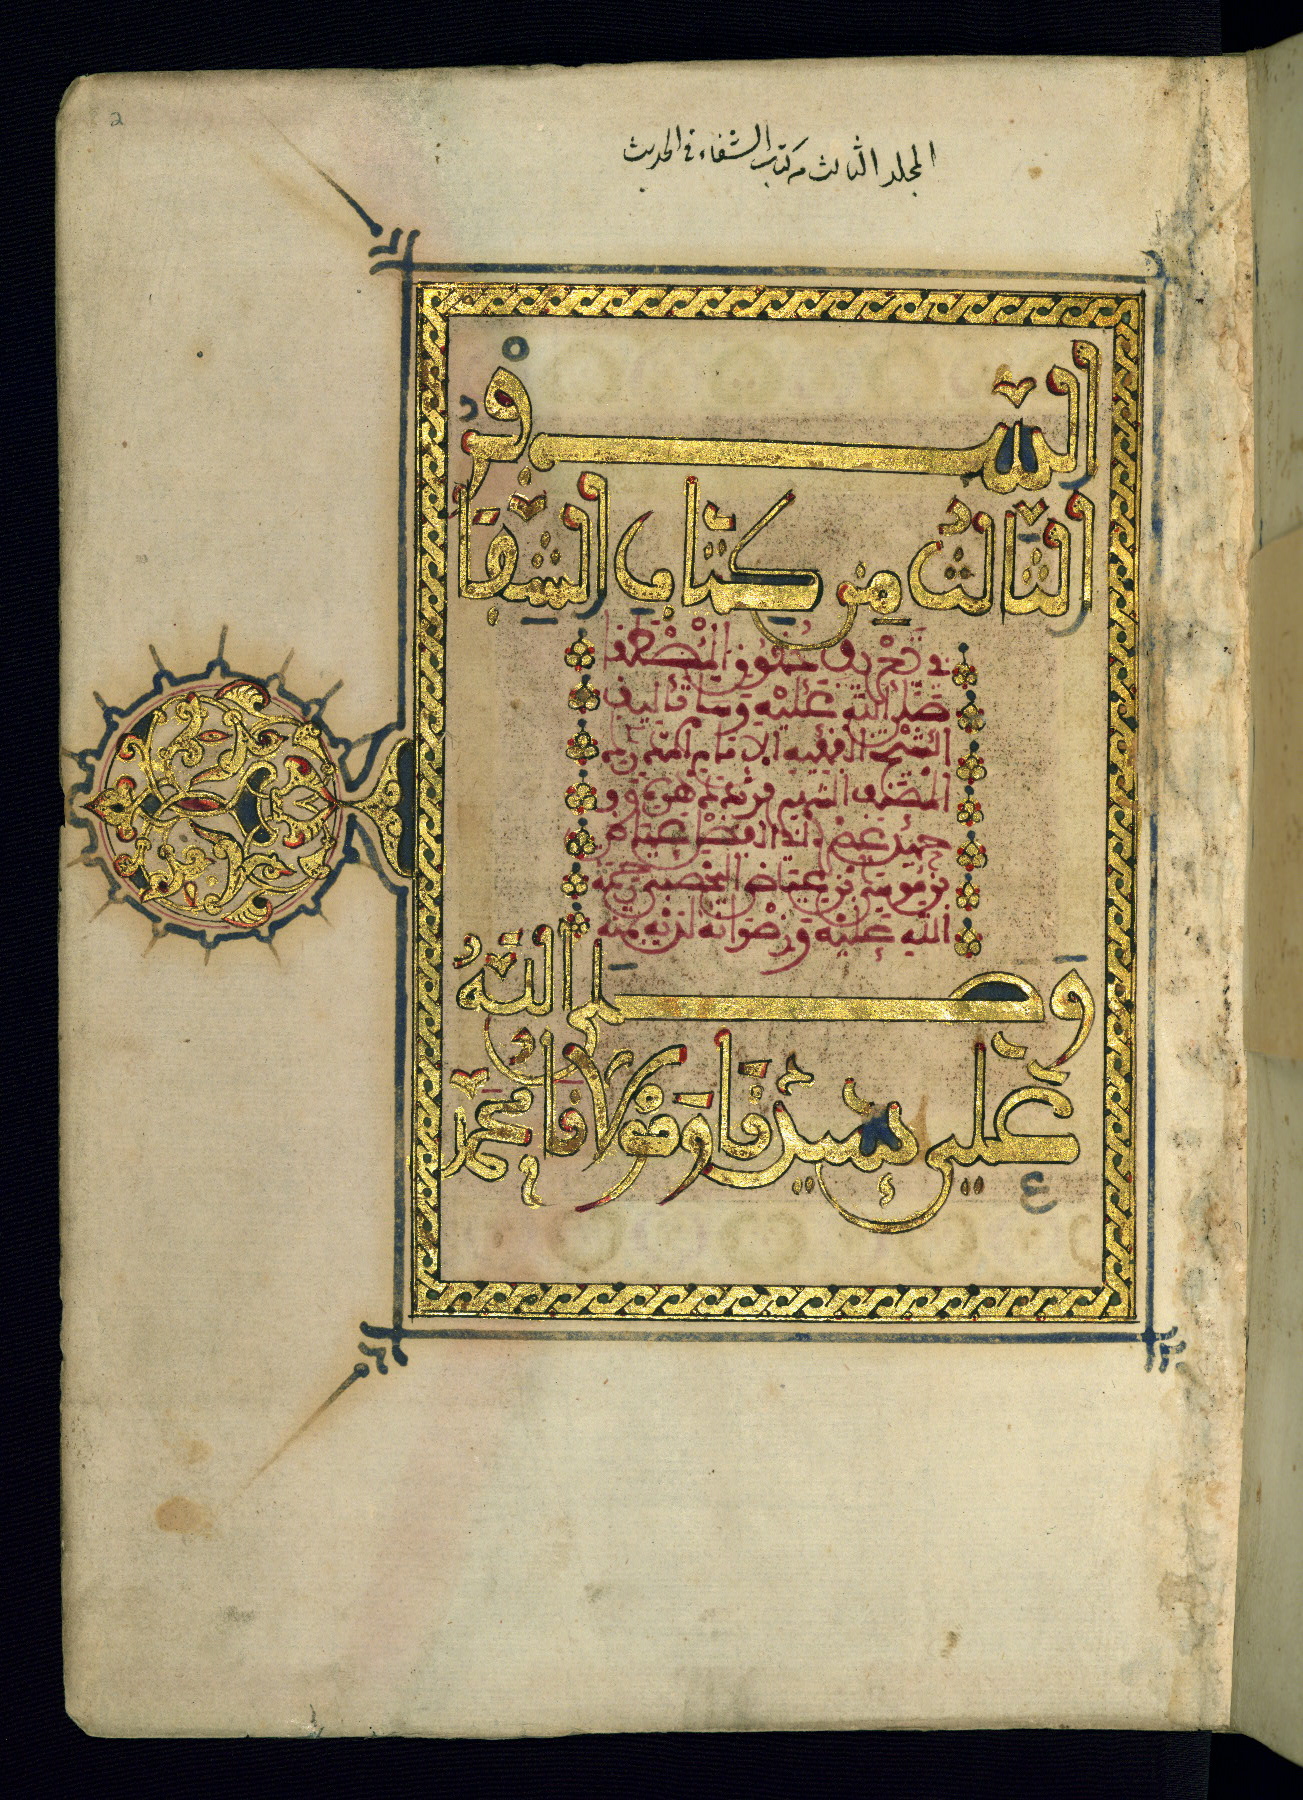 2
المجلد الثالث من كتاب الشفاء في الحديث
السفر
الثالث من كتاب الشفا
في تعريف حقوق المصطفى
صلى الله عليه وسلم تأليف
الشيخ الفقيه الامام
المصنف الشهير فريد دهره وو
حيد عصره ابي الفضل عياض
بن موسى بن عياض اليحصبي رحمة
الله عليه ورضوانه لديه
وصلى الله
على سيدنا ومولانا محمد